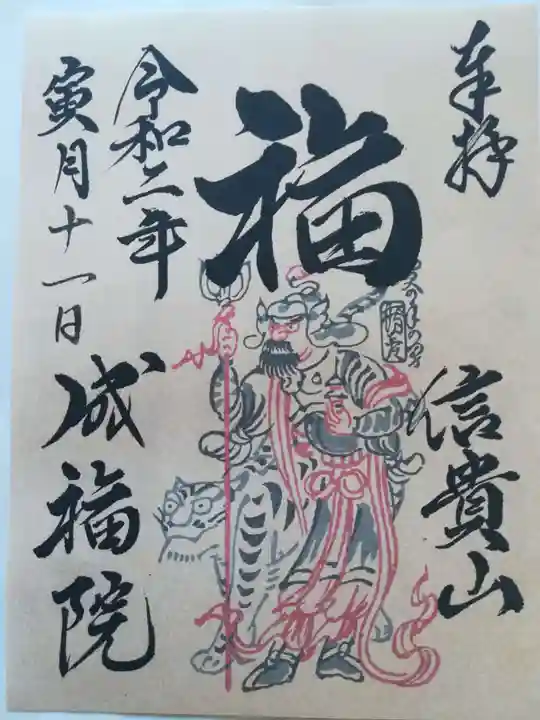 奉拝
福
信貴山
令和二年
寅月十一日
成福院